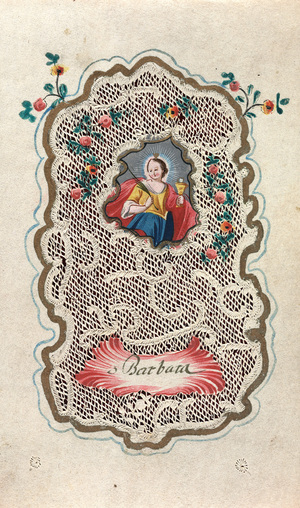 S Barbara